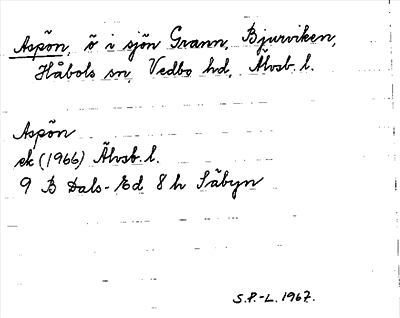 Aspön, ö i sjön Grann, Bjurviken,
Håbols sn, Vedbo hd, Älvsb. l.
Aspön
ek (1966) Älvsb. l.
9 B Dals-Ed 8 h Säbyn
S.P.-L. 1967.